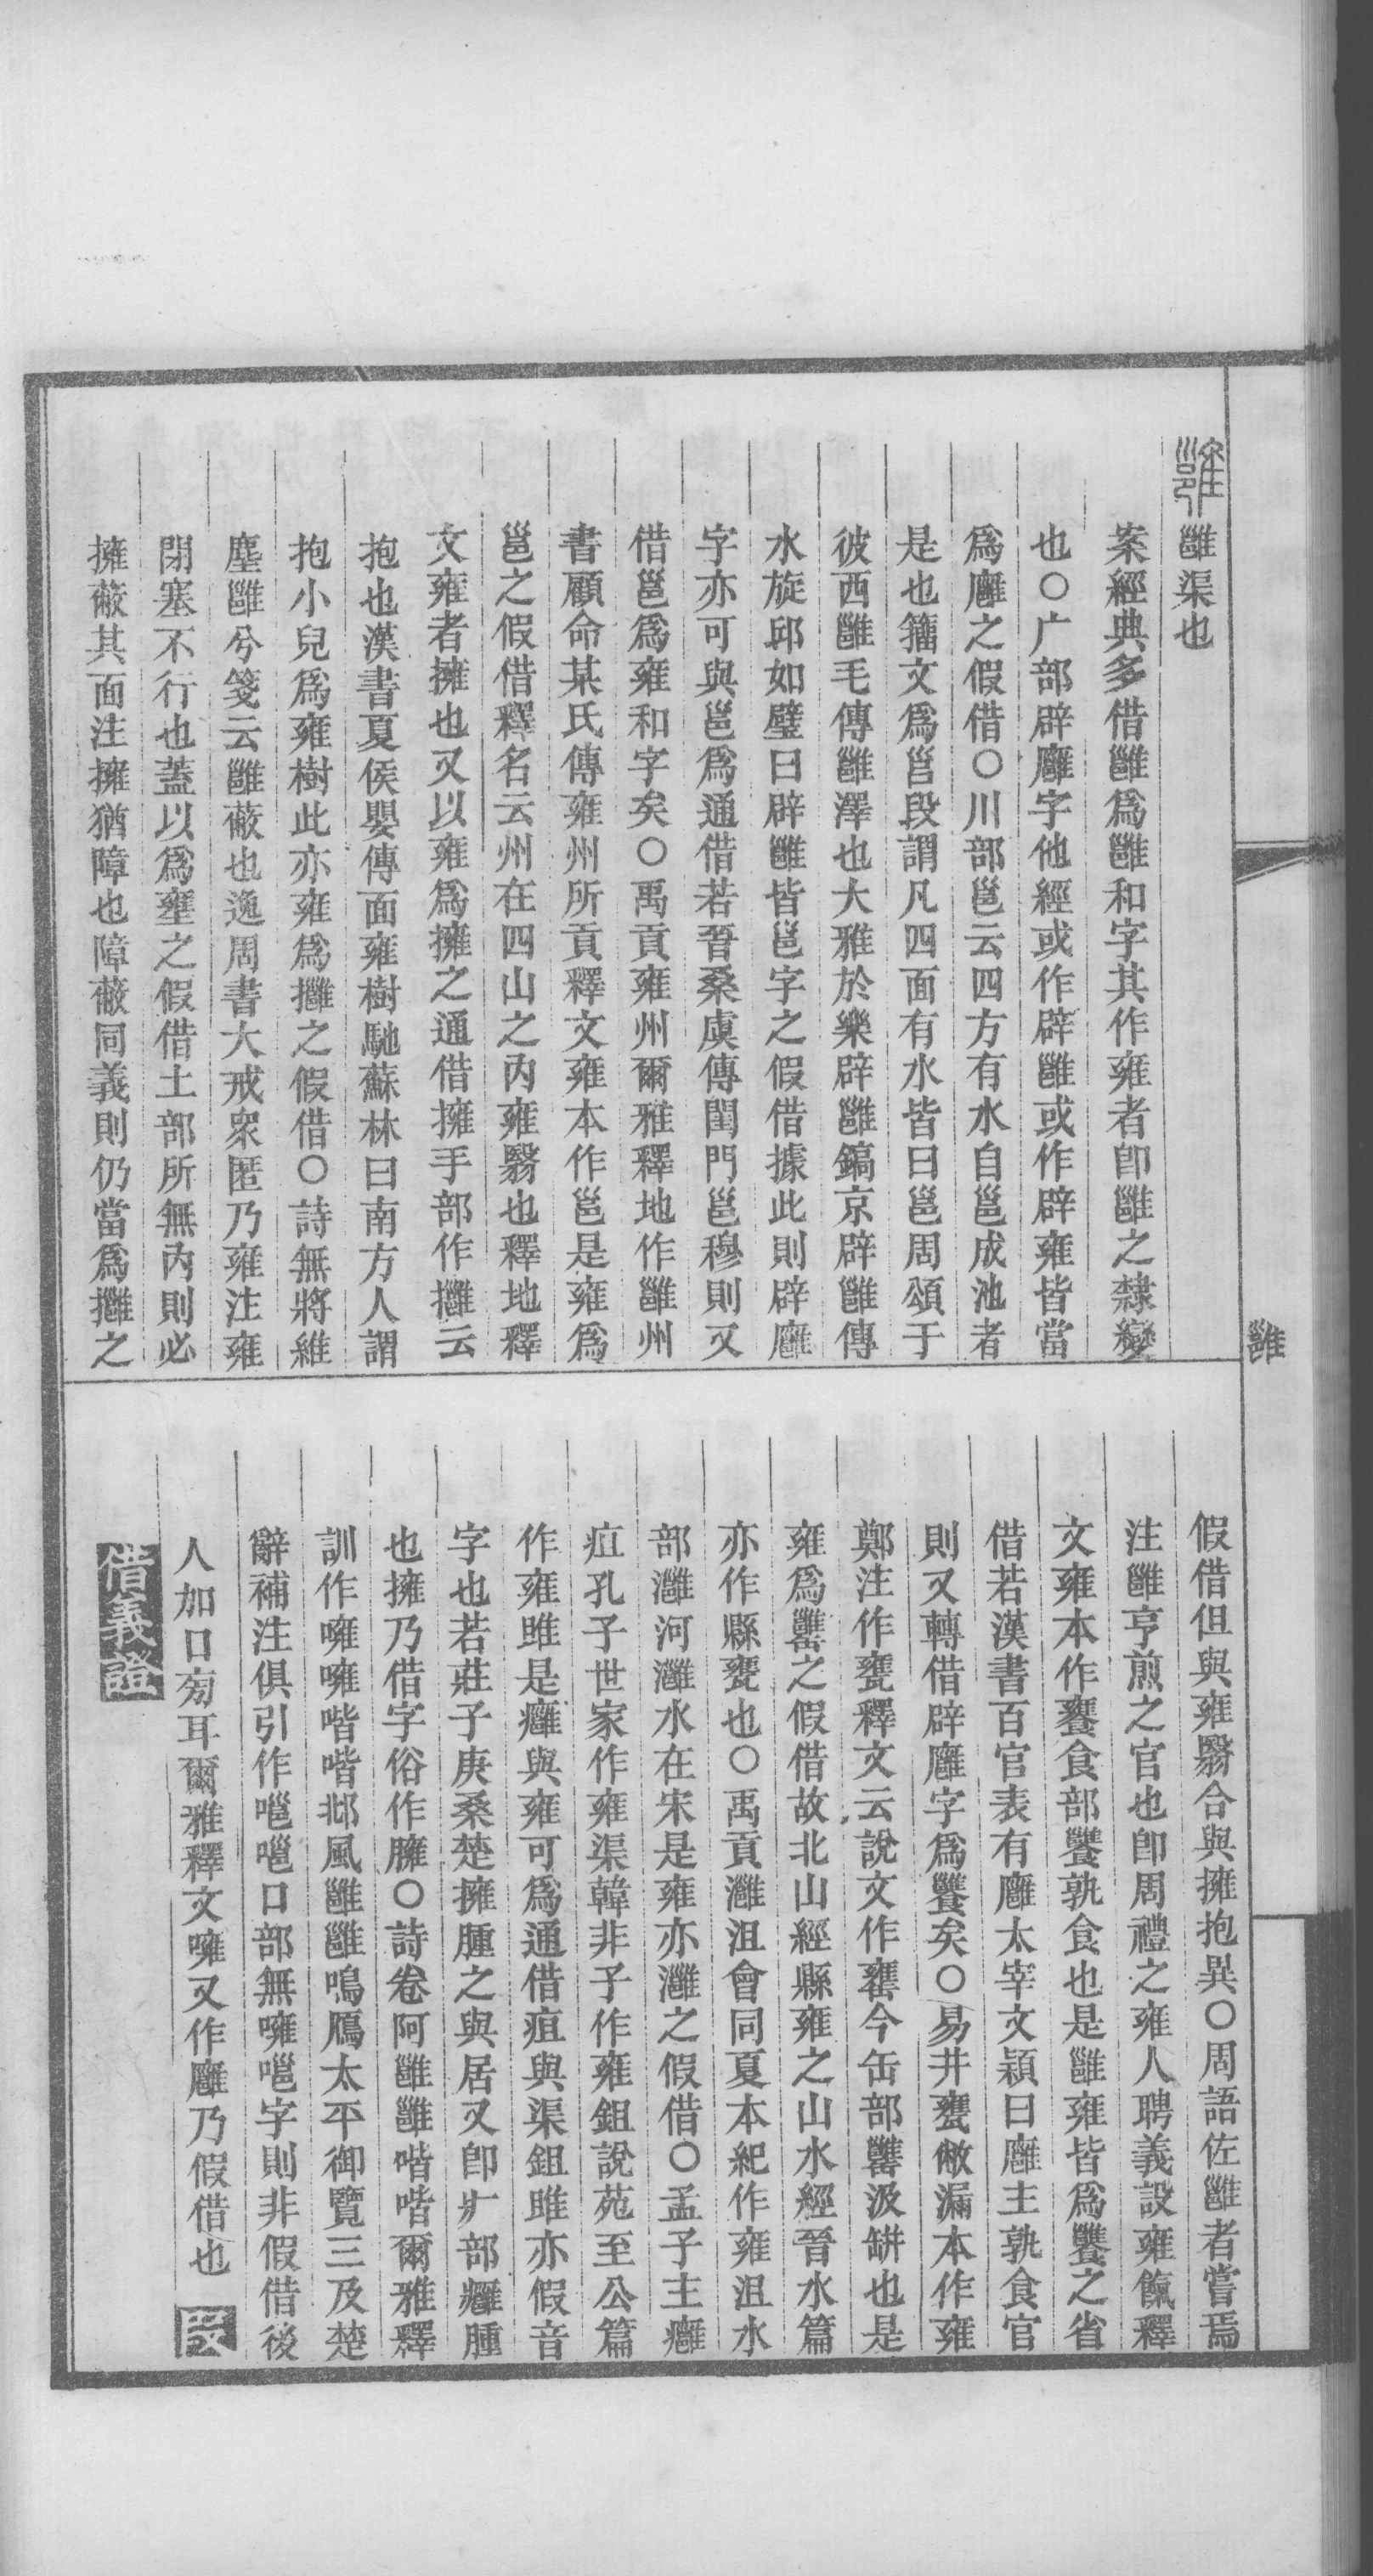 雝
雝渠也
案經典多借雝爲雝和字其作雍者卽雝之隸變
也○广部辟廱字他經或作辟雝或作辟雍皆當
爲廱之假借○川部邕云四方有水自邕成池者
是也籀文爲𡿷段謂凡四面有水皆曰邕周頌于
彼西雝毛傳雝澤也大雅於樂辟雝鎬京辟雝傳
水旋邱如璧曰辟雝皆邕字之假借據此則辟廱
字亦可與邕爲通借若晉桑虞傳閨門邕穆則又
借邕爲雍和字矣○禹貢雍州爾雅釋地作雝州
書顧命某氏傳雍州所貢釋文雍本作邕是雍爲
邕之假借釋名云州在四山之內雍翳也釋地釋
文雍者擁也又以雍爲擁之通借擁手部作㩴云
抱也漢書夏侯嬰傳面雍樹馳蘇林曰南方人謂
抱小兒爲雍樹此亦雍爲㩴之假借○詩無將維
塵雝兮箋云雝蔽也逸周書大戒衆匿乃雍注雍
閉塞不行也蓋以爲壅之假借土部所無內則必
擁蔽其面注擁猶障也障蔽同義則仍當爲㩴之
假借但與雍翳合與擁抱異○周語佐雝者嘗焉
注雝亨煎之官也卽周禮之雍人聘義設雍餼釋
文雍本作饔食部饔孰食也是雝雍皆爲饔之省
借若漢書百官表有廱太宰文穎曰廱主孰食官
則又轉借辟廱字爲饔矣○易井甕敝漏本作雍
鄭注作甕釋文云說文作罋今缶部罋汲缾也是
雍爲罋之假借故北山經縣雍之山水經晉水篇
亦作縣甕也○禹貢灉沮會同夏本紀作雍沮水
部灉河灉水在宋是雍亦灉之假借○孟子主癰
疽孔子世家作雍渠韓非子作雍鉏說苑至公篇
作雍雎是癰與雍可爲通借疽與渠鉏雎亦假音
字也若莊子庚桑楚擁腫之與居又卽疒部癰腫
也擁乃借字俗作臃○詩卷阿雝雝喈喈爾雅釋
訓作噰噰喈喈邶風雝雝鳴鴈太平御覽三及楚
辭補注俱引作嗈嗈口部無噰嗈字則非假借後
人加口㫄耳爾雅釋文噰又作廱乃假借也
借義證
雝